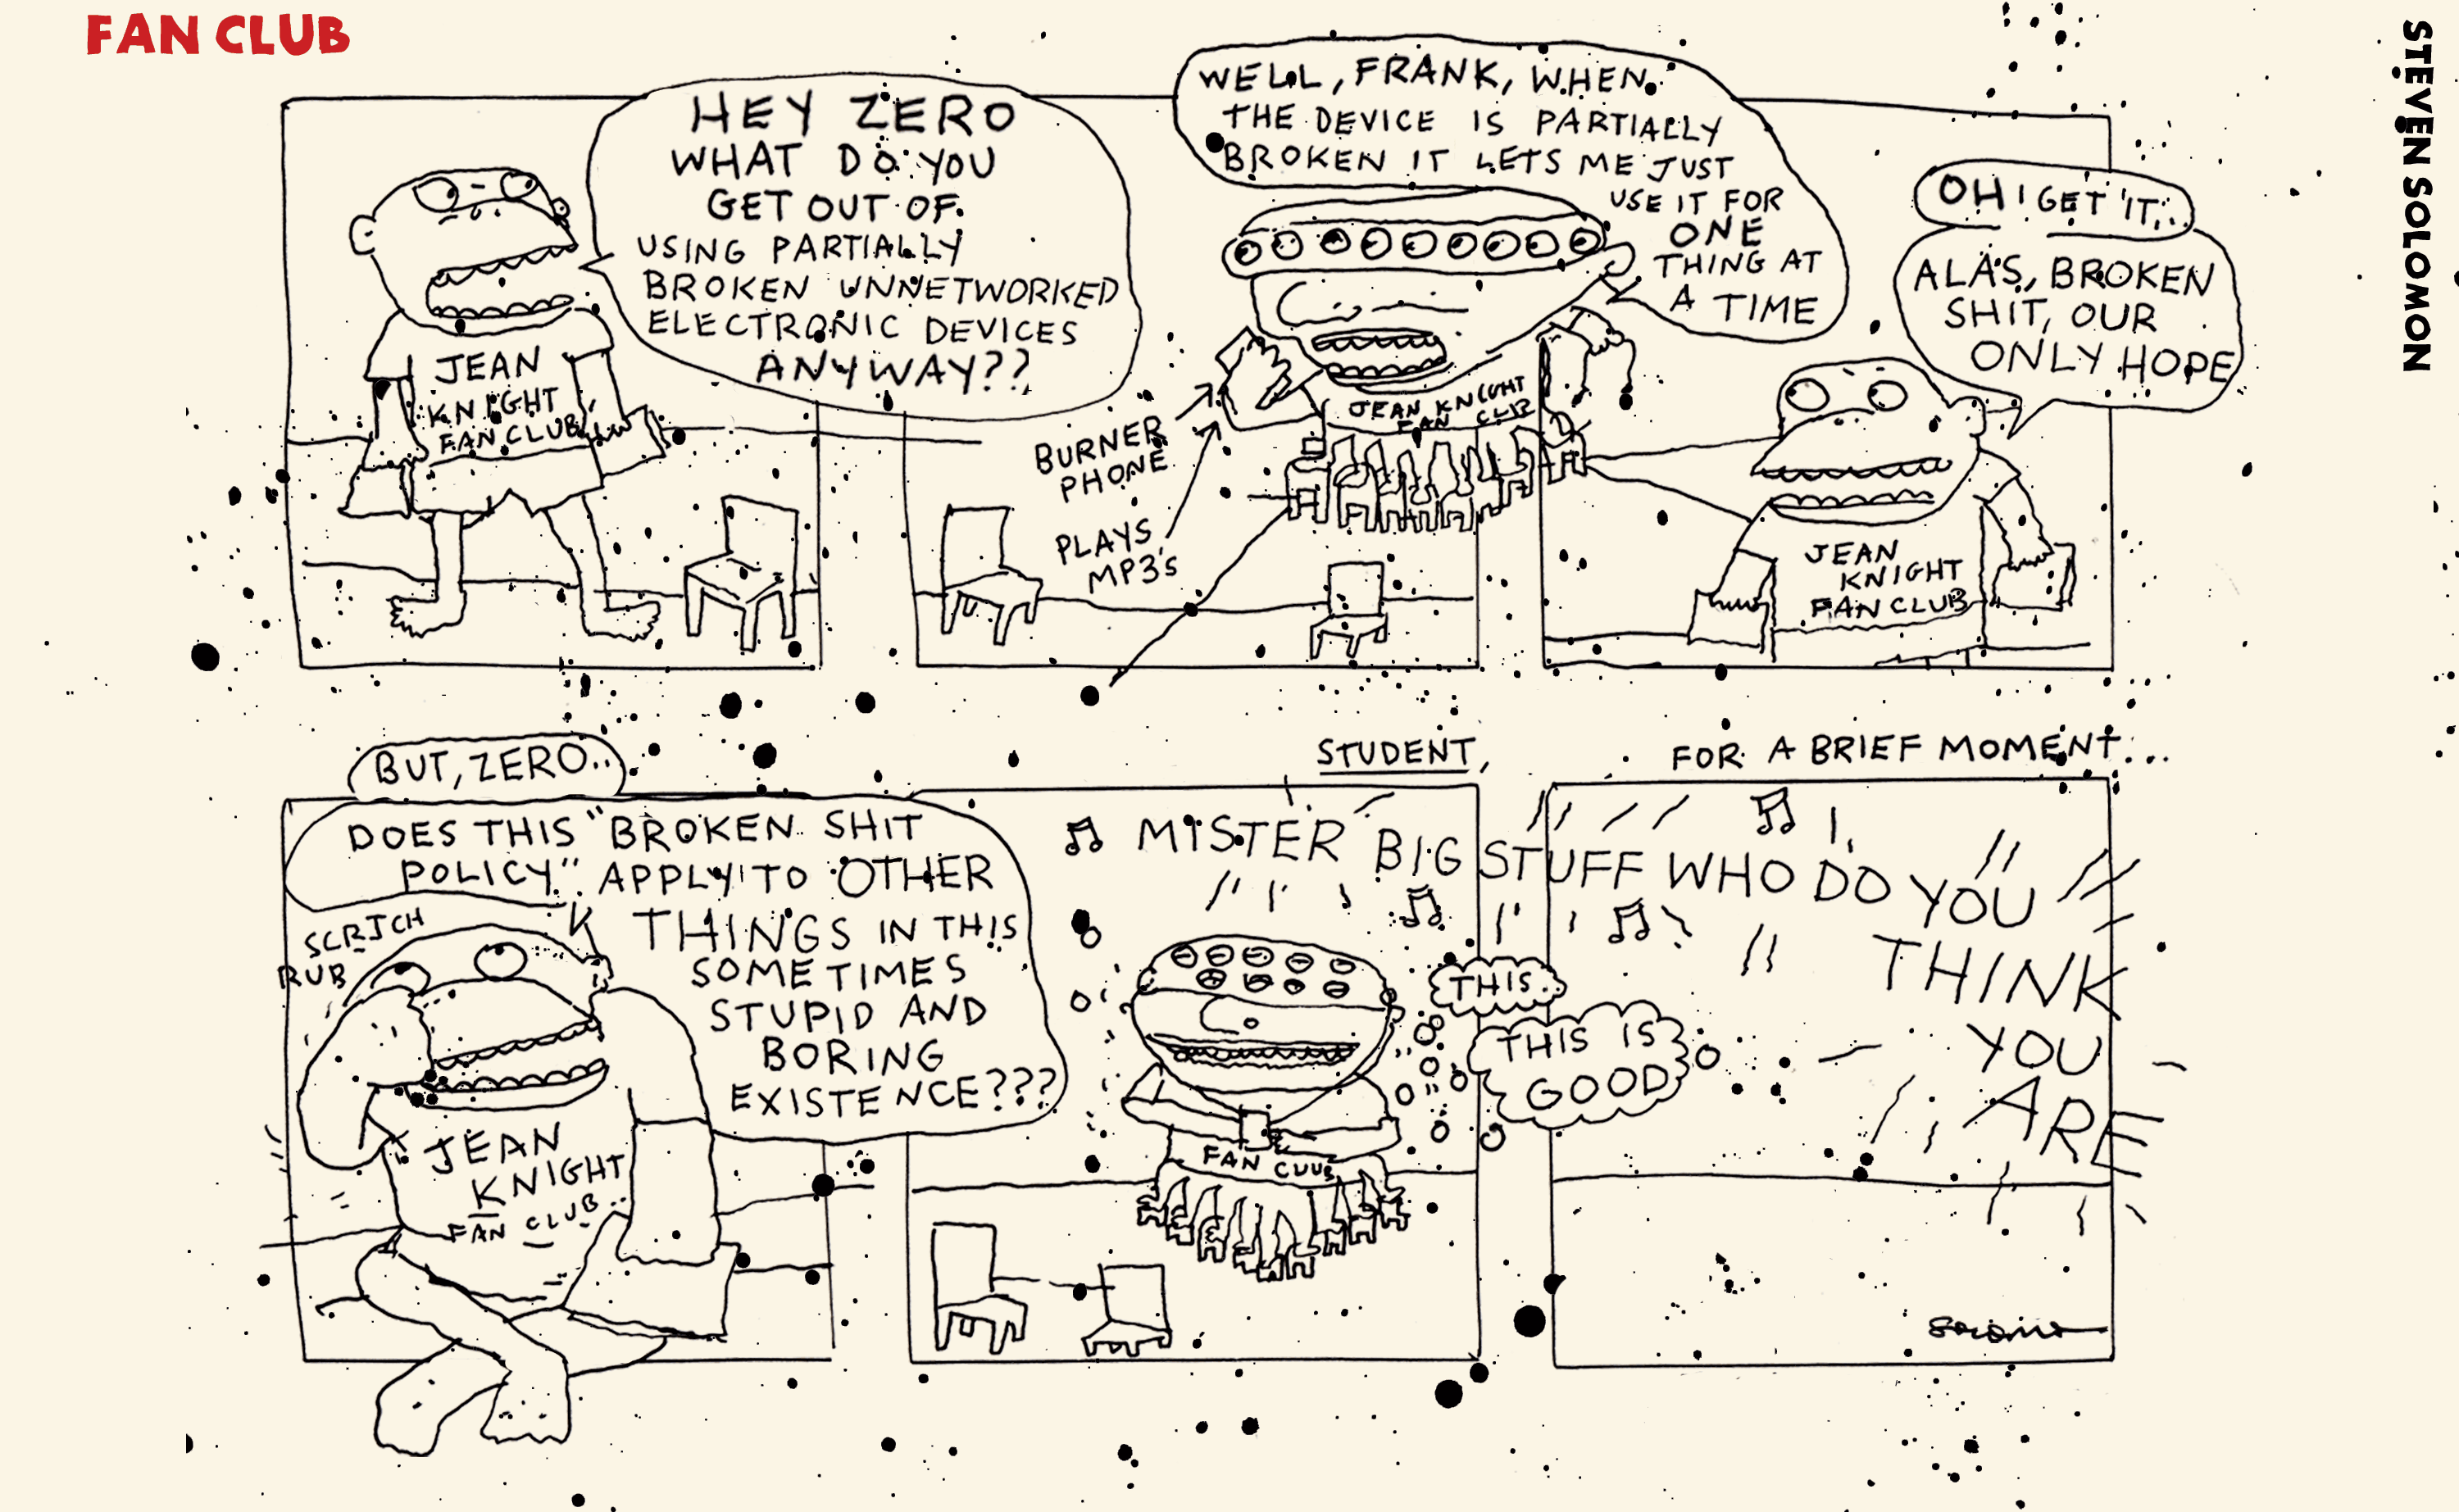 FAN CLUB
STEVEN SOLOMON
HEY ZERO
WHAT DO YOU
GET OUT OF
USING PARTIALLY
BROKEN UNNETWORKED
ELECTRONIC DEVICES
ANYWAY??
JEAN
KNIGHT
FAN CLUB
WELL, FRANK, WHEN
THE DEVICE IS PARTIALLY
BROKEN IT LETS ME JUST
USE IT FOR
ONE
THING AT
A TIME
BURNER
PHONE
PLAYS
MP3's
JEAN KNIGHT
FAN CLUB
OH I GET IT..
ALAS, BROKEN
SHIT, OUR
ONLY HOPE
JEAN
KNIGHT
FAN CLUB
BUT, ZERO..
DOES THIS "BROKEN SHIT
POLICY" APPLY TO OTHER
THINGS IN THIS
SOMETIMES
STUPID AND
BORING
EXISTENCE???
SCRITCH
RUB
JEAN
KNIGHT
FAN CLUB
STUDENT,
MISTER BIG STUFF WHO DO YOU
THINK
YOU
ARE
THIS..
THIS IS
GOOD
FAN CLUB
FOR A BRIEF MOMENT...